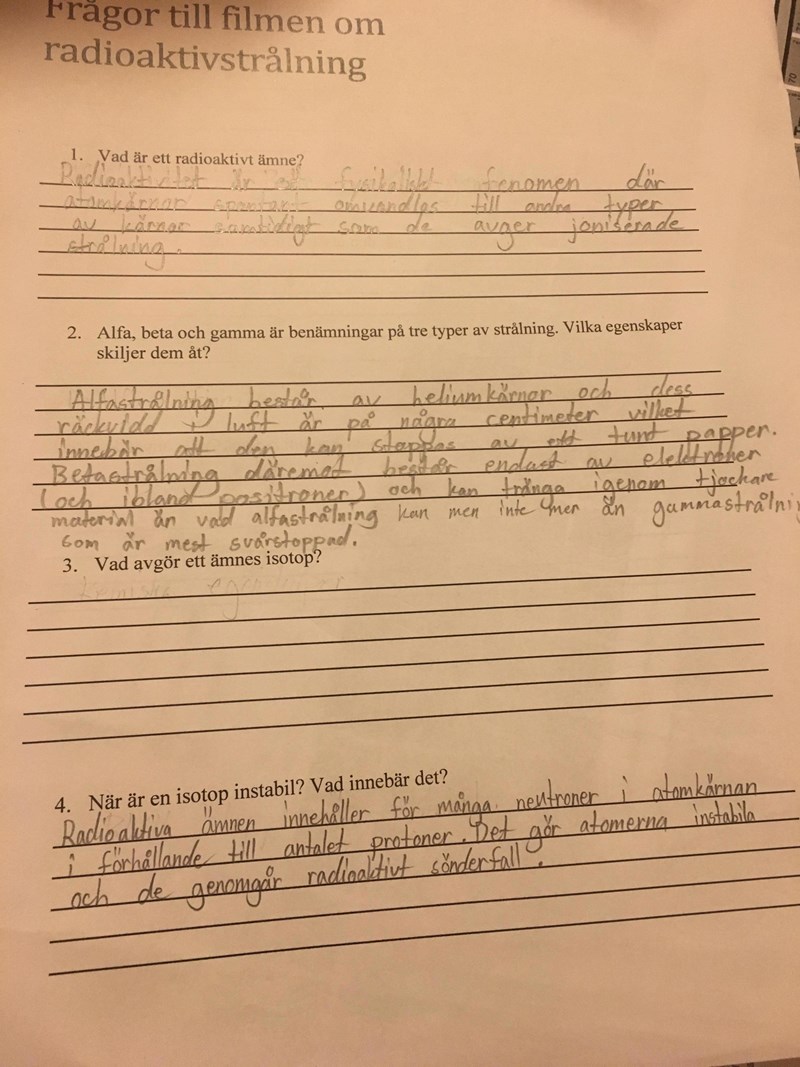 Frågor till filmen om
radioaktivstrålning
1. Vad är ett radioaktivt ämne?
Radioaktivitet är ett fysikaliskt fenomen där
atomkärnor spontant omvandlas till andra typer
av kärnor samtidigt som de avger joniserade
strålning.
2. Alfa, beta och gamma är benämningar på tre typer av strålning. Vilka egenskaper
skiljer dem åt?
Alfastrålning består av heliumkärnor och dess
räckvidd i luft är på några centimeter vilket
innebär att den kan stoppas av ett tunt papper.
Betastrålning däremot består endast av elektroner
(och ibland positroner) och kan tränga igenom tjockare
material än vad alfastrålning kan men inte mer än gammastrålni
som är mest svårstoppad.
3. Vad avgör ett ämnes isotop?
4. När är en isotop instabil? Vad innebär det?
Radioaktiva ämnen innehåller för många neutroner i atomkärnan
i förhållande till antalet protoner. Det gör atomerna instabila
och de genomgår radioaktivt sönderfall.